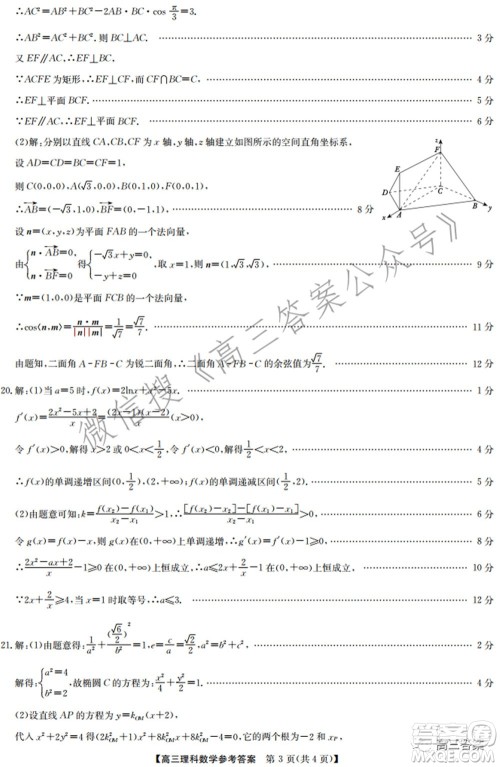 ∴AC²=AB²+BC²-2AB·BC·cos π/3=3.
∴AB²=AC²+BC².则 BC⊥AC. 3分
又 EF∥AC,∴EF⊥BC.
∵ACFE 为矩形,∴EF⊥CF,而 CF∩BC=C, 4分
∴EF⊥平面 BCF. 5分
∵EF⊂平面 AEF,∴平面 AEF⊥平面 BCF. 6分
(2)解:分别以直线 CA,CB,CF 为 x 轴,y 轴,z 轴建立如图所示的空间直角坐标系,
设 AD=CD=BC=CF=1,
则 C(0,0,0),A(√3,0,0),B(0,1,0),F(0,0,1)
∴AB=(-√3,1,0),FB=(0,-1,1), 8分
z
F
E
D
C
A
B
x
y
设 n=(x,y,z)为平面 FAB 的一个法向量,
由{n·AB=0, n·FB=0 得{-√3x+y=0, -y+z=0 ,取 x=1,则 n=(1,√3,√3), 9分
∵m=(1,0,0)是平面 FCB 的一个法向量 10分
∴cos⟨n,m⟩=n·m/|n||m|=1/√7=√7/7. 11分
由题知,二面角 A-FB-C 为锐二面角,∴二面角 A-FB-C 的余弦值为√7/7. 12分
20.解:(1)当 a=5 时,f(x)=2lnx+x²-5x. 1分
f′(x)=2x²-5x+2/x=(2x-1)(x-2)/x(x>0), 2分
令 f′(x)>0,解得 x>2 或 0<x<1/2,令 f′(x)<0,解得1/2<x<2. 4分
∴f(x)的单调递增区间(0,1/2),(2,+∞);f(x)的单调递减区间(1/2,2). 5分
(2)由题意可知:k=f(x₂)-f(x₁)/x₂-x₁>1,∴[f(x₂)-x₂]-[f(x₁)-x₁]/x₂-x₁>0, 6分
令 g(x)=f(x)-x,则 g(x)在(0,+∞)上单调递增,∴g′(x)=f′(x)-1≥0, 8分
∴2x²-ax+2/x-1≥0 在(0,+∞)上恒成立,∴a≤2x+2/x-1 在(0,+∞)上恒成立, 10分
∵2x+2/x≥4,当 x=1 时取等号,∴a≤3. 12分
21.解:(1)由题意得:1/a²+(√6/2)²/b²=1,e=c/a=√2/2,a²=b²+c², 2分
解得:{a²=4 b²=2,故椭圆 C 的方程为:x²/4+y²/2=1. 4分
(2)设直线 AP 的方程为 y=k(x+2),
代入 x²+2y²=4 得(2k²+1)x²+8k²x+8k²-4=0,它的两个根为-2 和
【高三理科数学参考答案 第 3 页(共 4 页)】
微信搜《高三答案公众号》
高三答案